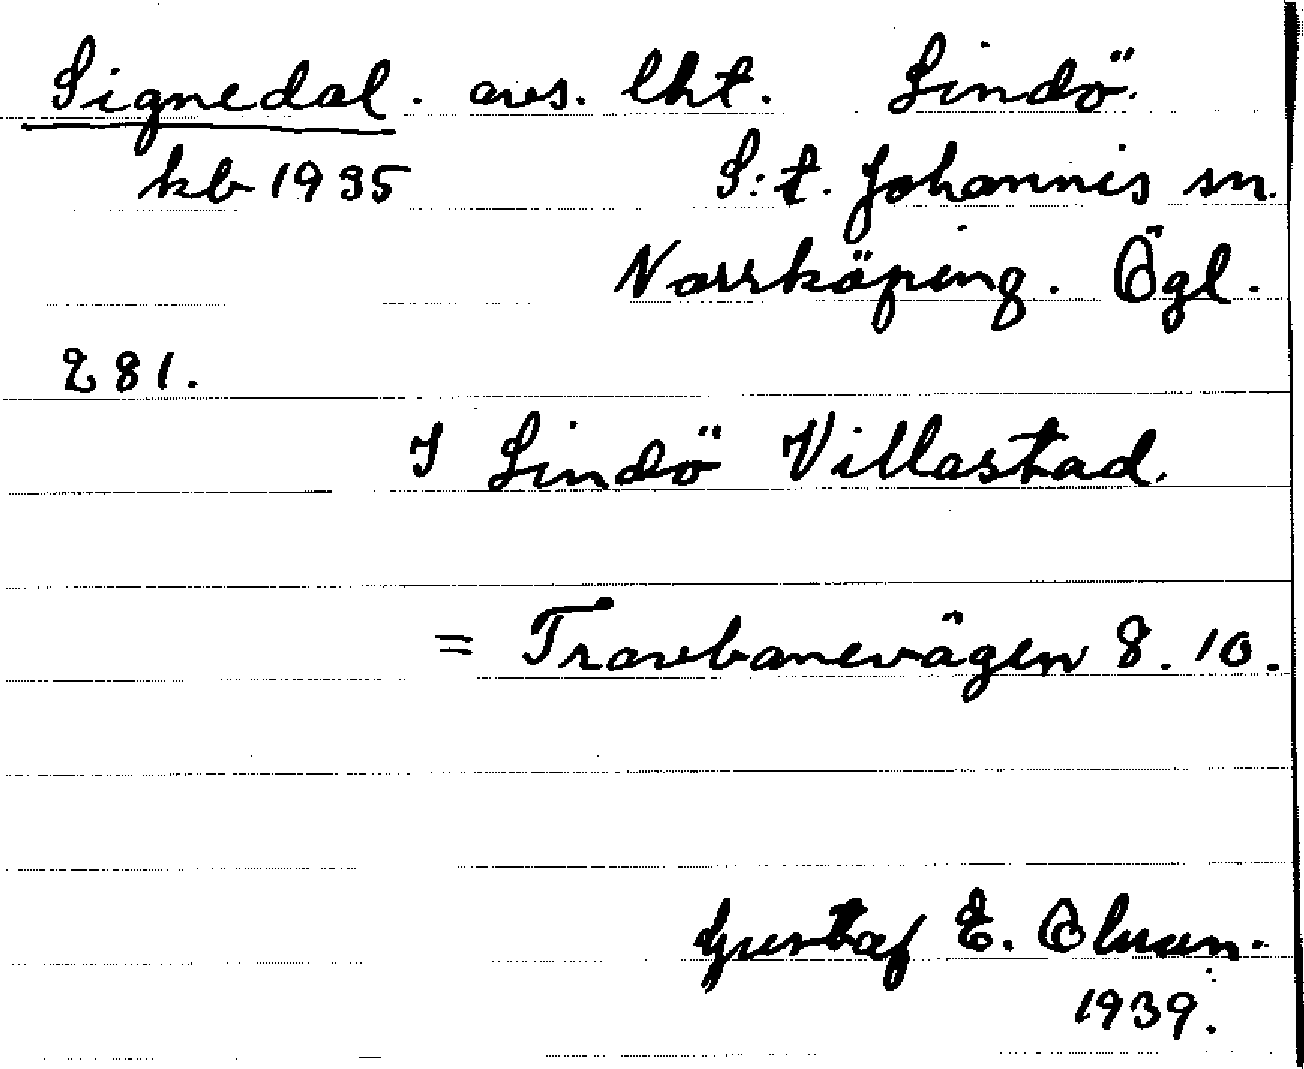 Signedal. avs. lht. Lindö.
kb 1935 S:t. Johannis sn.
Norrköping. Ögl.
281.
I Lindö Villastad.
= Travbanevägen 8. 10.
Gustaf E. Olsson.
1939.